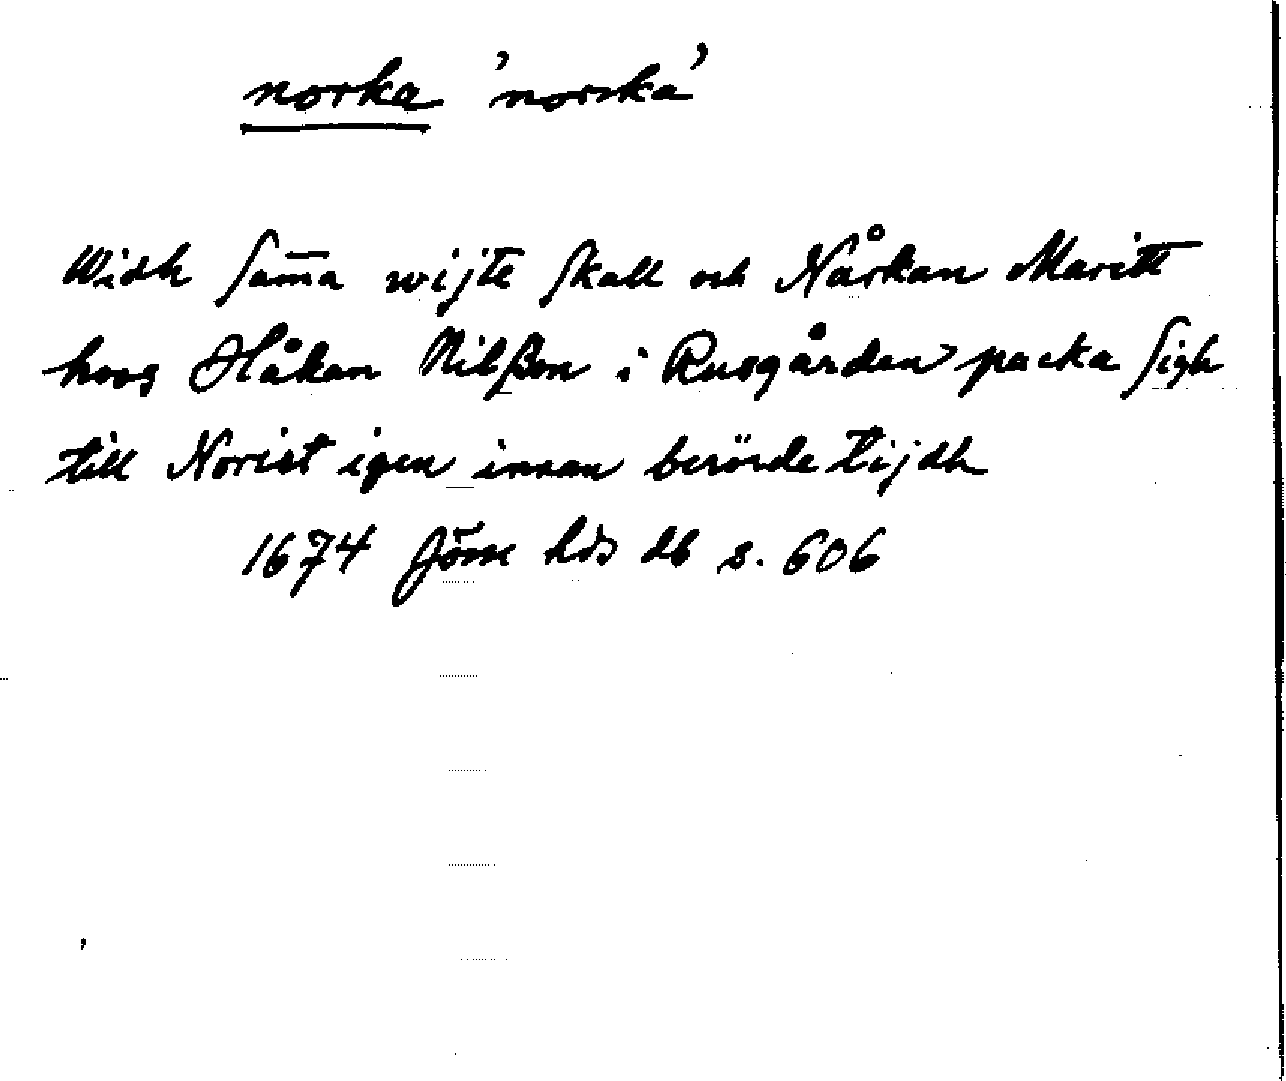 norka 'norska'
Widh sam̅a wijte skall och Nårkan Maritt
hoos Håkan Nilßon i Rusgården packa sigh
till Noriet igen innan berörde tijdh
1674 Jösse hds db s. 606